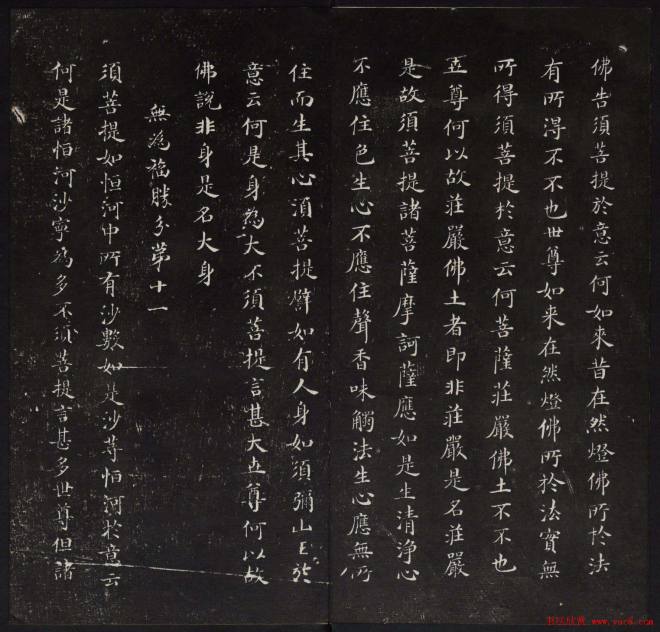 佛告須菩提於意云何如來昔在然燈佛所於法
有所淂不不也世尊如来在然燈佛所於法實無
所得須菩提於意云何菩薩莊嚴佛土不不也
世尊何以故莊嚴佛土者即非莊嚴是名莊嚴
是故須菩提諸菩薩摩訶薩應如是生清淨心
不應住色生心不應住聲香味觸法生心應無所
住而生其心須菩提譬如有人身如須彌山王於
意云何是身為大不須菩提言甚大世尊何以故
佛說非身是名大身
無為福勝分第十一
須菩提如恒河中所有沙數如是沙等恒河於意云
何是諸恒河沙寧為多不須菩提言甚多世尊但諸
书法欣赏 www.yac8.com